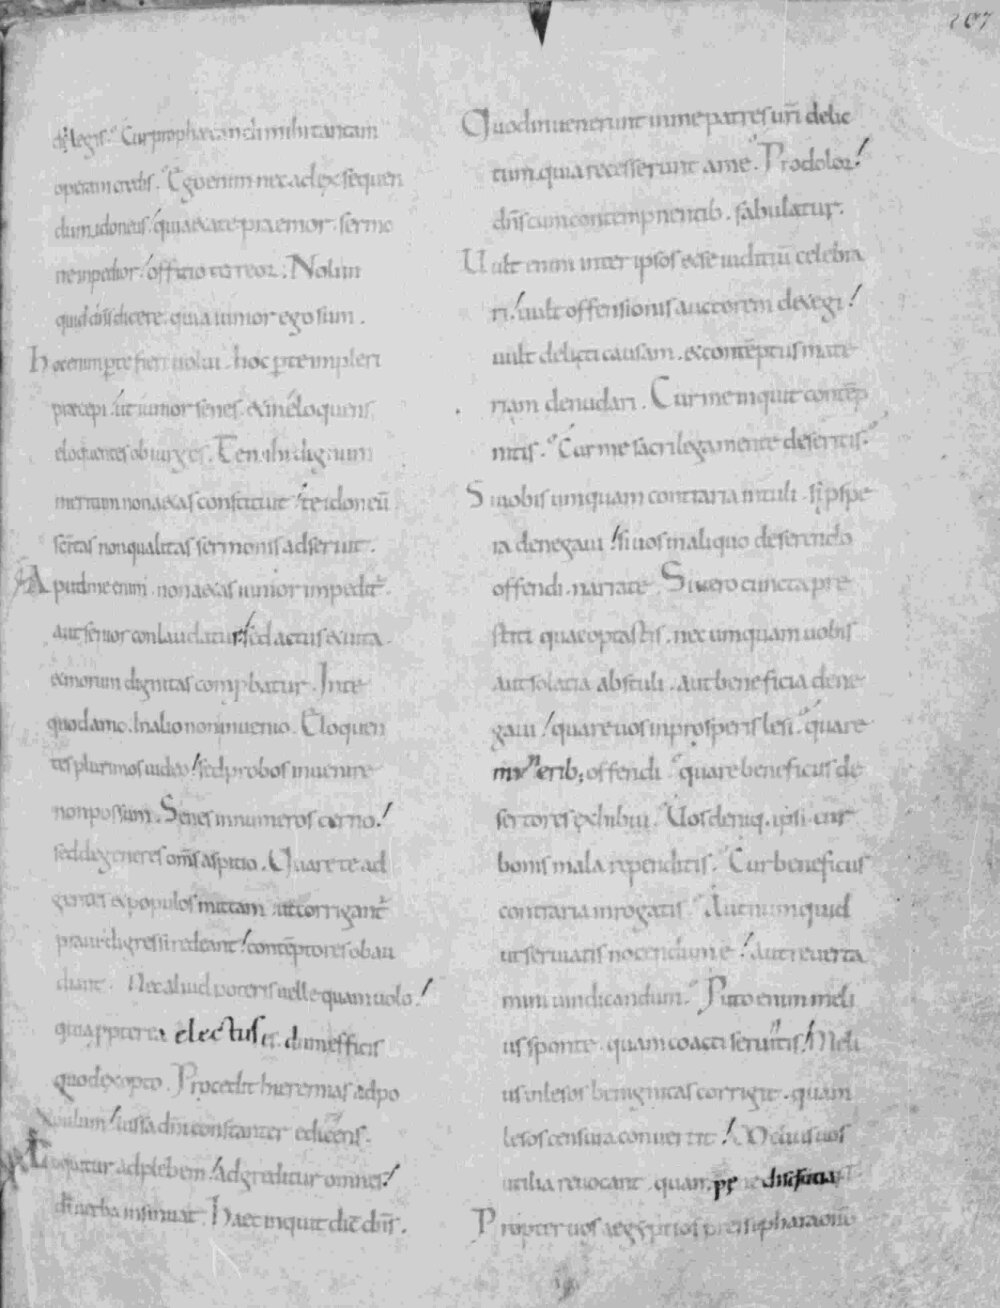 207
di legis. Cur prophetandi mihi tantam
operam credis. Ego enim nec ad exsequen
dum idoneus. quia aetate praemor. sermo
ne inpedior. officio terreor. Nolim
quid dn̄s dicere. quia iunior ego sum.
hoc enim p te fieri uolui. hoc p te impleri
praecepi. ut iunior senes. et ineloquens
eloquentes obiurges. Te mihi dignum
meritum non aetas constituit. te idoneū
scītas non qualitas sermonis adseruit.
Apud me enim. non aetas iunior impedit̄.
aut senior conlaudatur. sed actus et uita.
et morum dignitas comprobatur. In te
quod amo. In alio non inuenio. Eloquen
tes plurimos uideo. sed probos inuenire
non possum. Senes innumeros cerno.
sed degeneres om̄s aspicio. Quare te ad
gentes et populos mittam. ut corrigant̄
praui. digressi redeant. contēptores obau
diant. Nec aliud poteris uelle quam uolo.
quia ppterea electus es. dum efficis
quod exopto. Procedit hieremias ad po
pulum. iussa dn̄i constanter edicens.
Loquitur ad plebem. adgreditur omnes.
dī uerba insinuat. Haec inquit dic̄ dn̄s.
Quod inuenerunt in me patres ur̄i delic
tum. quia recesserunt a me. Pro dolor.
dn̄s cum contempnentib. fabulatur.
Uult enim inter ipsos et se iudiciū celebra
ri. uult offensionis auctorem detegi.
uult delicti causam. et contēptus mate
riam denudari. Cur me inquit contēp
nitis. Cur me sacrilega mente deseritis.
Si uobis umquam contraria intuli. si pspe
ra denegaui. si uos in aliquo deserendo
offendi. narrate. Si uero cuncta pre
stiti quae optastis. nec umquam uobis
aut solatia abstuli. aut beneficia dene
gaui. quare uos in prosperis lesi. quare
munerib; offendi. quare beneficus de
sertores exhibui. Uos deniq. ipsi cur
bonis mala rependitis. Cur beneficus
contraria inrogatis. Aut numquid
ur seruatis nocendum e. aut reuerta
mini uindicandum. Puto enim meli
us sponte. quam coacti seruitis. Meli
us inlesos benignitas corrigit. quam
lesos censura conuertit. Ad uos
utilia reuocant. quam
Propter uos aegyptios pressi pharaonē